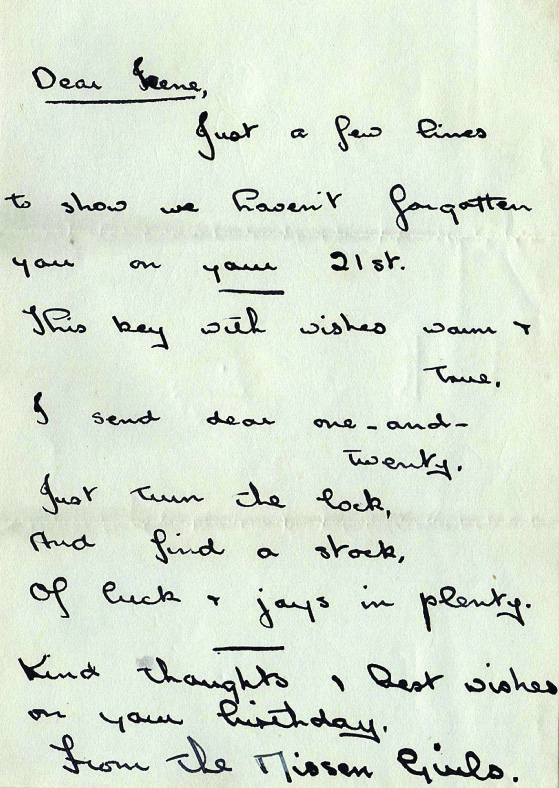 Dear Irene,
Just a few lines
to show we haven't forgotten
you on your 21st.
This key with wishes warm &
true,
I send dear one-and-
twenty.
Just turn the lock,
And find a stock,
Of luck & joys in plenty.
Kind thoughts & best wishes
on your birthday.
From the Missen Girls.